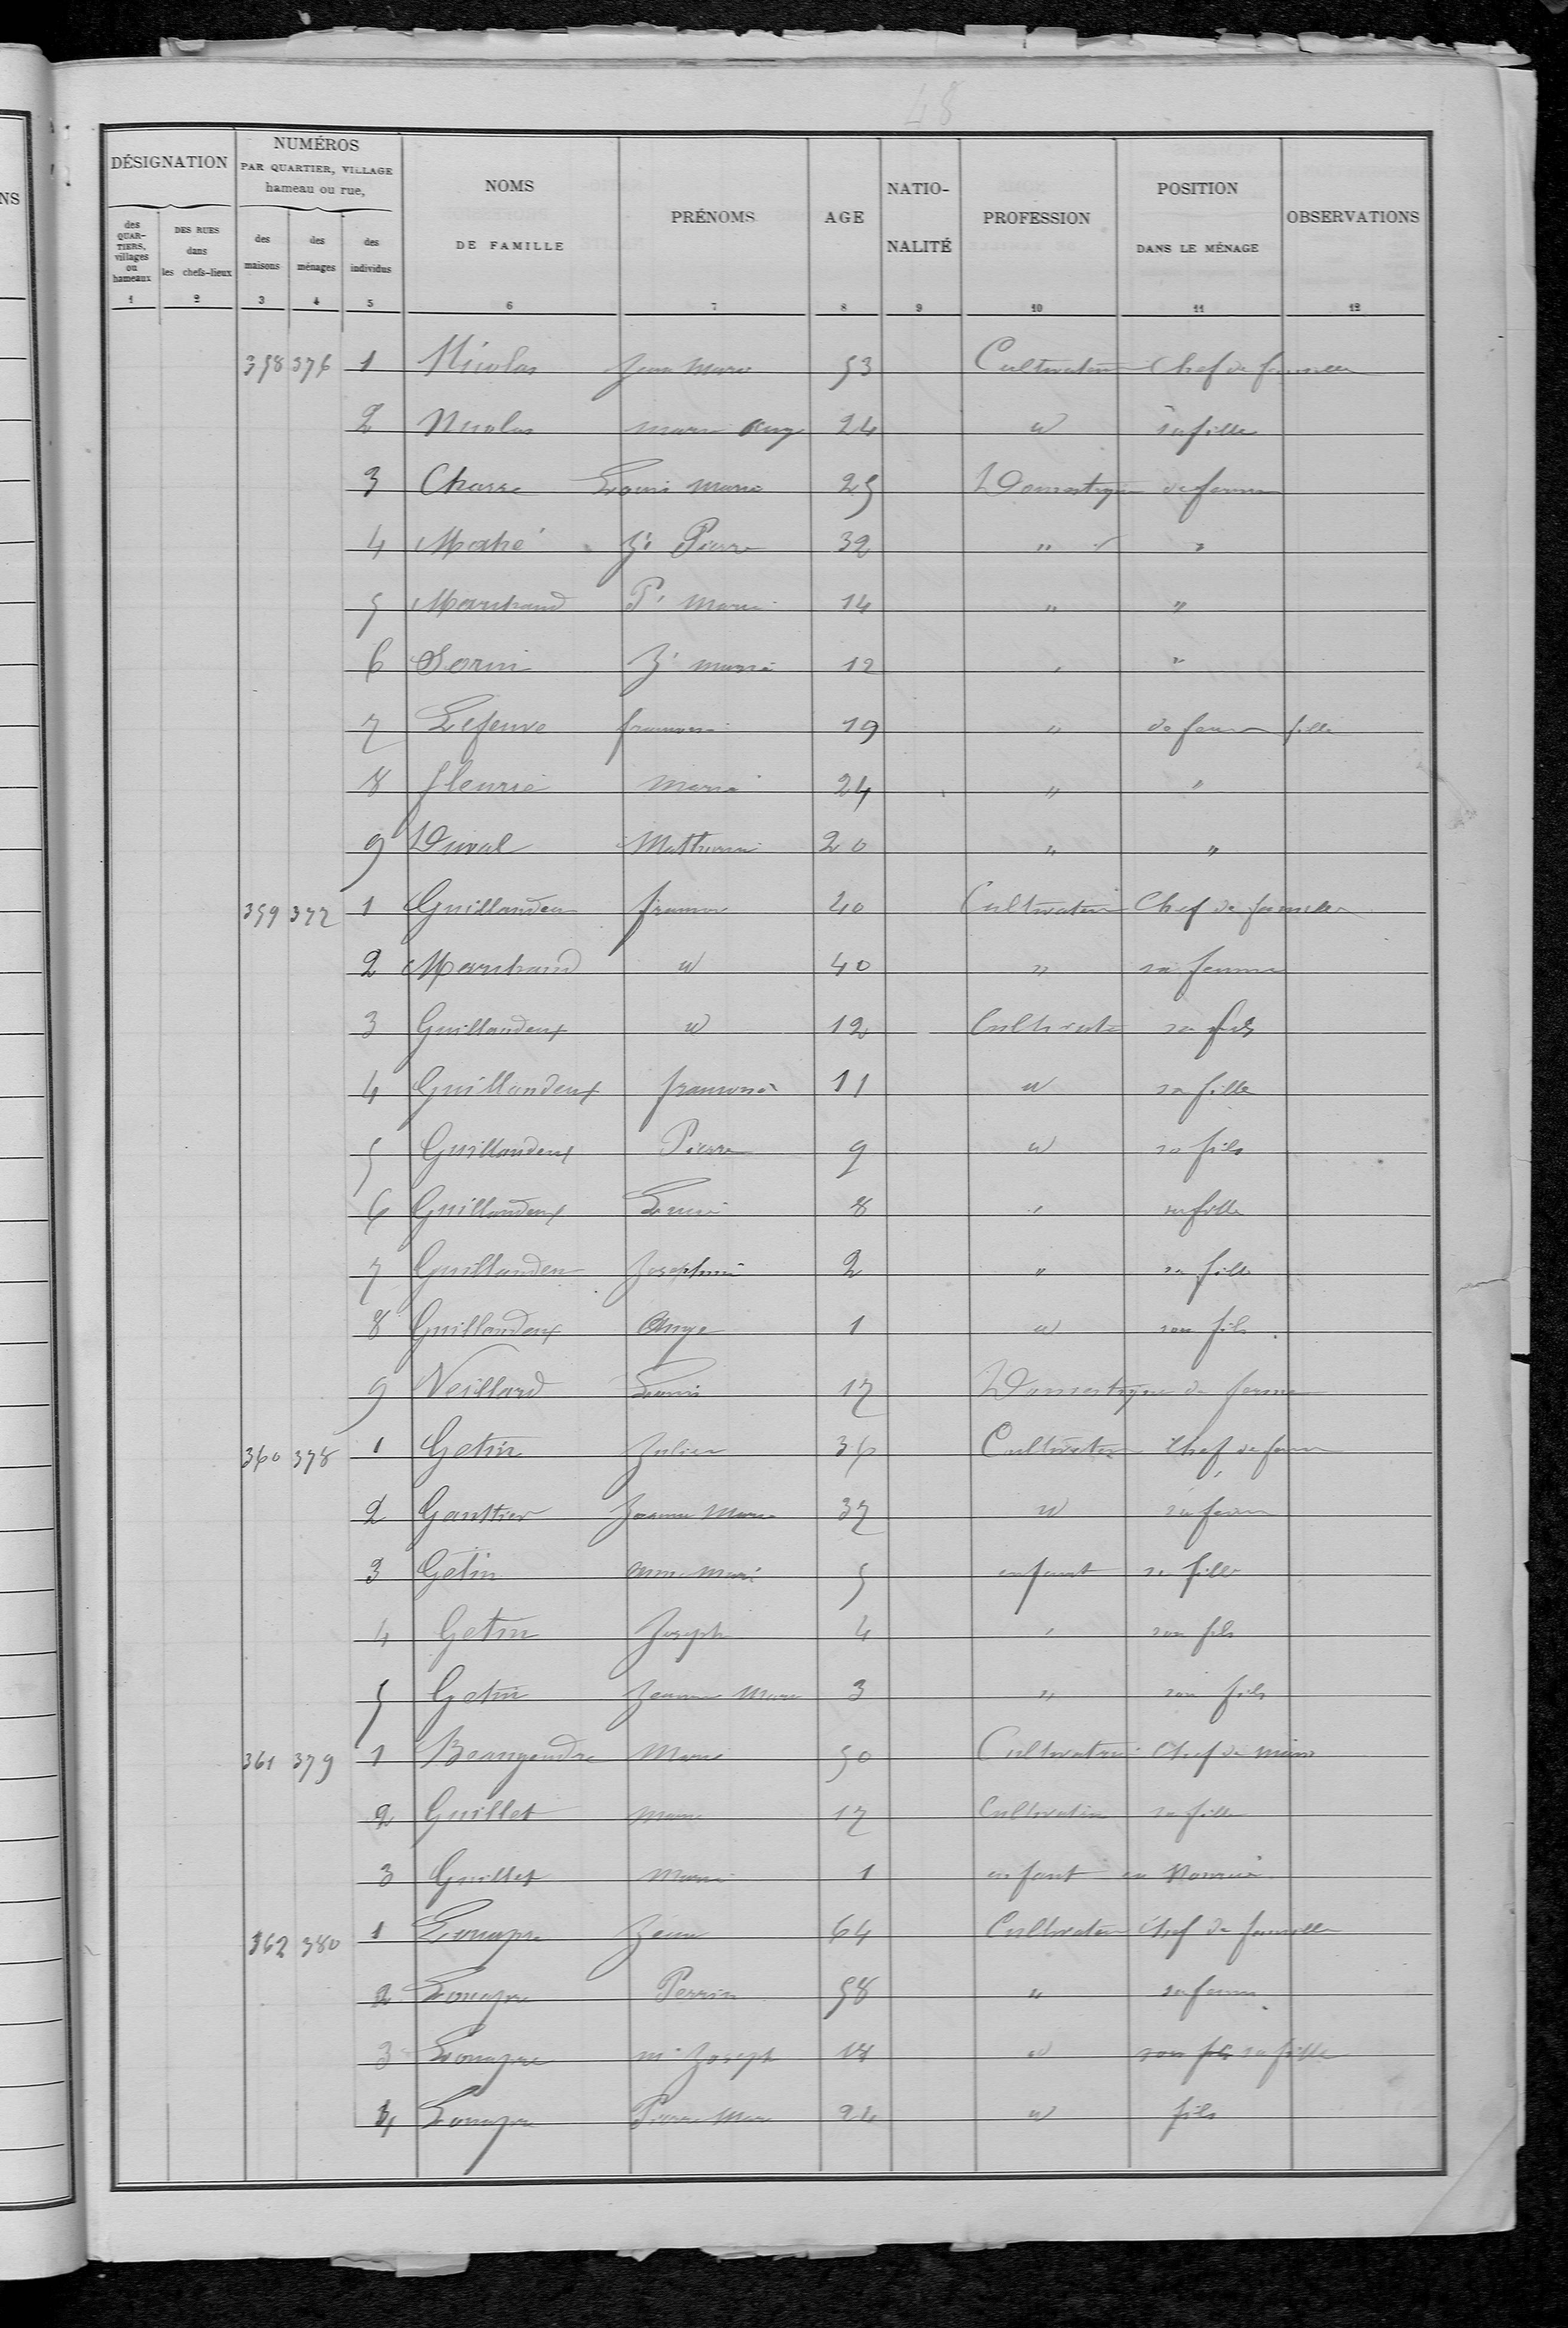 48
DÉSIGNATION
NUMÉROS
PAR QUARTIER, VILLAGE
hameau ou rue,
NOMS
DE FAMILLE
PRÉNOMS
AGE
NATIO-
NALITÉ
PROFESSION
POSITION
DANS LE MÉNAGE
OBSERVATIONS
des
QUAR-
TIERS,
villages
ou
hameaux
DES RUES
dans
les chefs-lieux
des
maisons
des
ménages
des
individus
1 2 3 4 5 6 7 8 9 10 11 12
358 376 1 Nicolas Jean Marie 53 Cultivateur Chef de famille
2 Nicolas Marie Ange 24 id sa fille
3 Chasse Louis Marie 25 Domestique de ferme
4 Mahé Pierre 32 " "
5 Marchand Marie 14 " "
6 Sorin Marie 12 " "
7 Lefeuve françoise 19 " de ferme fille
8 fleurie Marie 24 " "
9 Duval Mathurin 20 " "
359 377 1 Guillandeu francois 40 Cultivateur Chef de famille
2 Marchand id 40 " sa femme
3 Guillandeux id 12 Cultivate fils
4 Guillandeux francoise 11 id sa fille
5 Guillandeux Pierre 9 id so fils
6 Guillandeux Louise 8 " sa fille
7 Guillandeu Josephine 2 " sa fille
8 Guillandeux Ange 1 id son fils
9 Veillard Louis 17 Domestique de ferme
360 378 1 Getin Julien 36 Cultivateur Chef de fam
2 Gauttier Jeanne Marie 37 id sa fem
3 Gétin anne Marie 5 enfant sa fille
4 Getin Joseph 4 " son fils
5 Getin Jeanne Marie 3 " son fils
361 379 1 Beaugendre Marie 50 Cultivatrice Chef de
2 Guillet Marie 17 Cultivatrice sa fille
3 Guillet Marie 1 enfant en
362 380 1 Louapre Jean 64 Cultivateur Chef de famille
2 Louapre Perrin 58 " sa femm
3 Louapre Joseph 18 id son fils sa fille
4 Louapre Pierre Marie 24 id fils